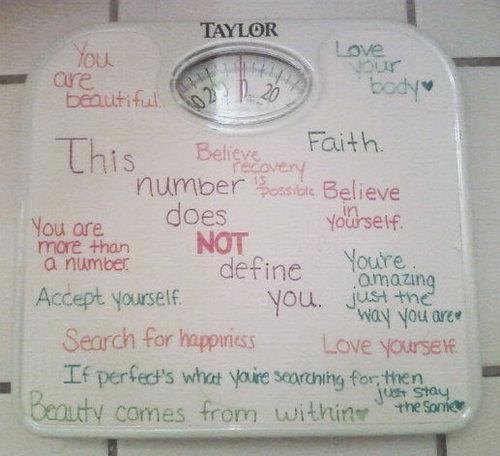 TAYLOR
0 20 0 20
You
are
beautiful.
Love
your
body♥
This
number
does
NOT
define
you.
Believe
recovery
is
possible
Faith.
Believe
in
yourself.
You are
more than
a number.
You're
amazing
just the
way you are♥
Accept yourself.
Search for happiness
Love yourself.
If perfect's what you're searching for, then
just stay
the same♥
Beauty comes from within♥